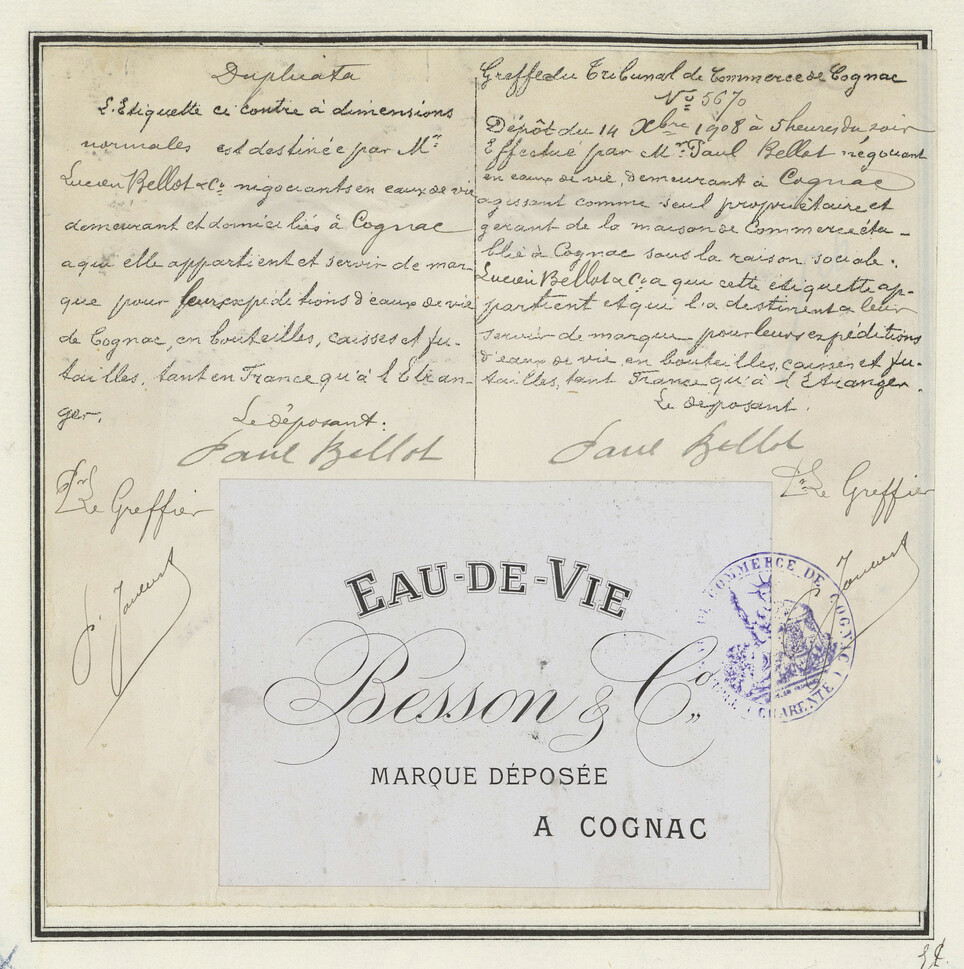 Duplicata
L'Etiquette ci contre à dimensions
normales est destinée par Mrs
Lucien Bellot & Co négociants en eaux de vie
demeurant et domiciliés à Cognac
a qui elle appartient et servir de mar-
que pour leurs expéditions d'eaux de vie
de Cognac, en bouteilles, caisses et fu-
tailles, tant en France qu'à l'Etran-
ger.
Le déposant:
Paul Bellot
Le Greffier
Greffe du Tribunal de Commerce de Cognac
No 5670
Dépôt du 14 Xbre 1908 à 5 heures du soir
Effectué par Mr Paul Bellot négociant
en eaux de vie, demeurant à Cognac
agissant comme seul propriétaire et
gérant de la maison de Commerce éta-
blie à Cognac sous la raison sociale:
Lucien Bellot & Co a qui cette étiquette ap-
partient et qui l'a destinent a leur
servir de marque pour leurs expéditions
d'eaux de vie en bouteilles, caisses et fu-
tailles, tant France qu'à l'Etranger.
Le déposant.
Paul Bellot
Le Greffier
EAU-DE-VIE
Besson & Co
MARQUE DÉPOSÉE
A COGNAC
DE COMMERCE DE COGNAC
CHARENTE